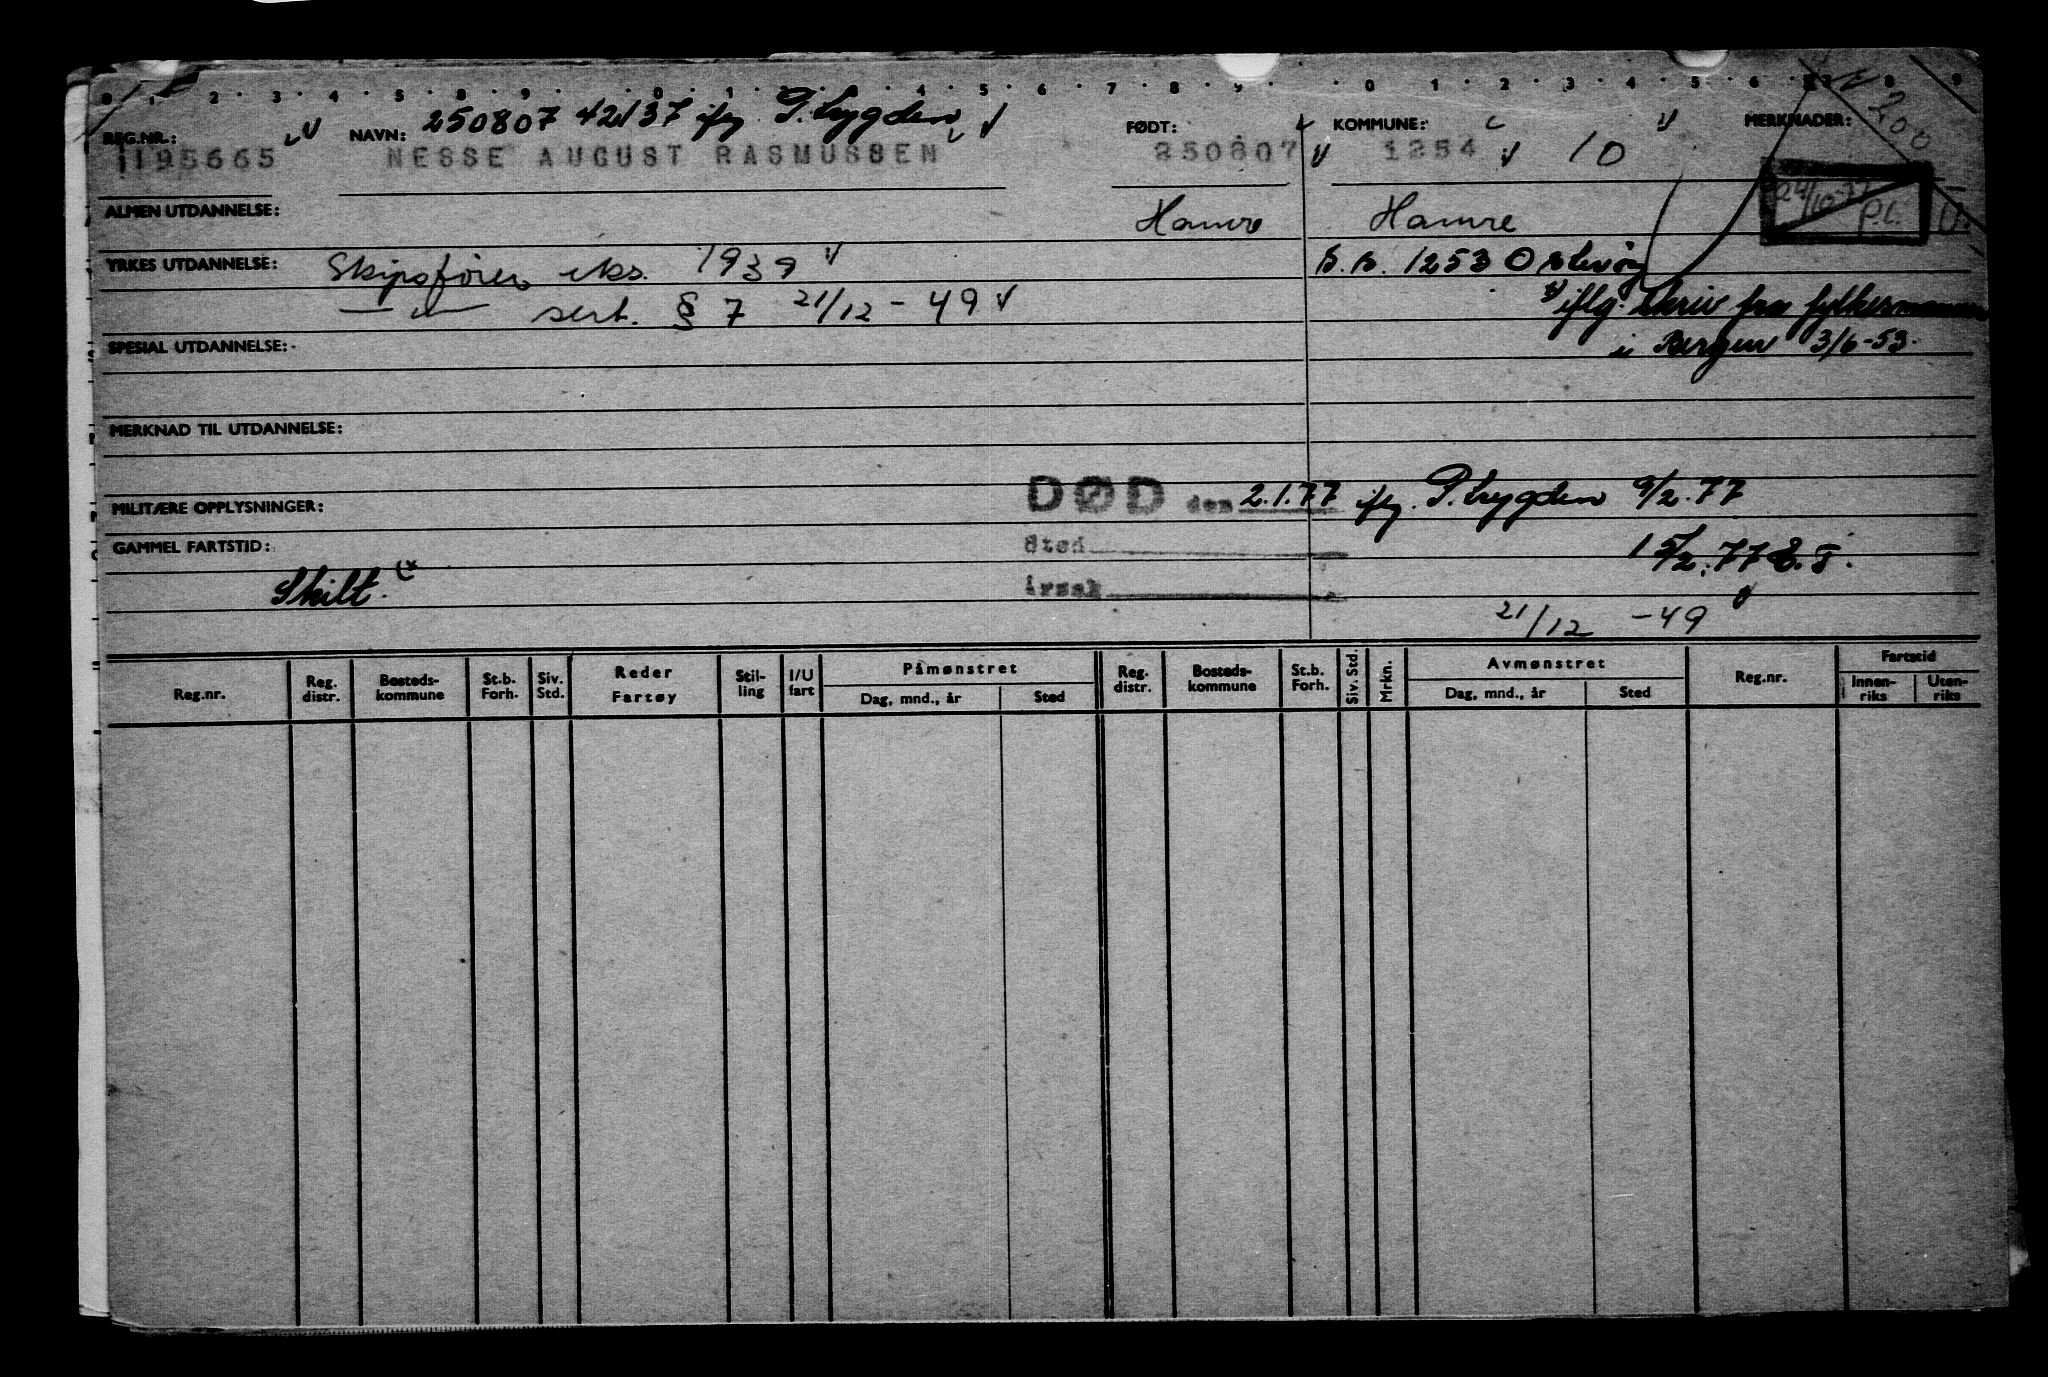 0 1 2 3 4 5 8 9 0 1 4 5 6 7 8 9 0 1 2 3 4 5 6 8 9
250807 42137 ifg P. trygden
REG.NR.: NAVN: FØDT: KOMMUNE: MERKNADER: 200
1195665 NESSE AUGUST RASMUSSEN 250807 1254 10
ALMEN UTDANNELSE: Hamre Hamre P.L.
YRKES UTDANNELSE: Skipsfører eks. 1939 B.B. 1253 Osterøy
— " — sert. § 7 21/12 - 49 iflg. skriv fra fylkesmannen
SPESIAL UTDANNELSE: i Bergen 3/6-53.
MERKNAD TIL UTDANNELSE:
MILITÆRE OPPLYSNINGER: DØD den 2.1.77 ifg. P. trygden 9/2.77
GAMMEL FARTSTID: Sted 15/2.77 E.T.
Skilt. årsak
21/12 -49
Reg.nr. Reg. distr. Bosteds-kommune St.b. Forh. Siv. Std. Reder Fartøy Stil-ling I/U fart Påmønstret Dag, mnd., år Sted Reg. distr. Bosteds-kommune St.b. Forh. Siv. Std. Mrkn. Avmønstret Dag, mnd., år Sted Reg.nr. Fartstid Innen-riks Uten-riks